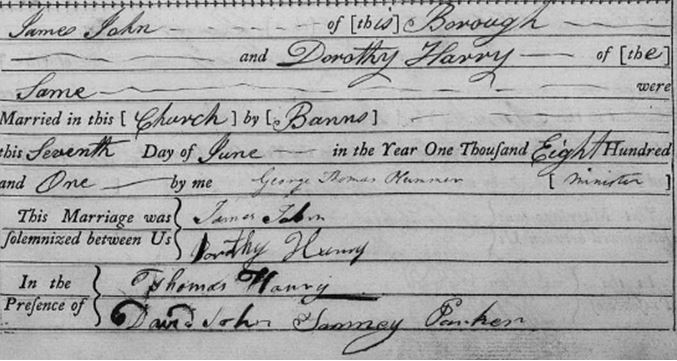 James John of [this] Borough
and Dorothy Harry of [the]
Same were
Married in this [Church] by [Banns]
this Seventh Day of June in the Year One Thouſand Eight Hundred
and One by me George Thomas [minister]
This Marriage was James John
ſolemnized between Us Dorthy Harry
In the Thomas Harry
Preſence of David John Parker